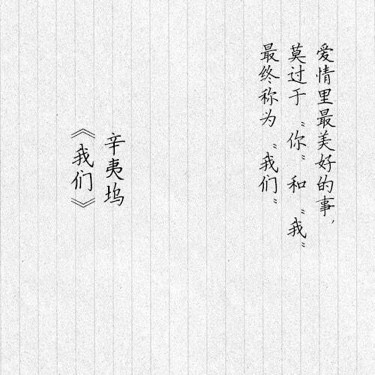 爱情里最美好的事，
莫过于“你”和“我”
最终称为“我们”
辛夷坞
《我们》